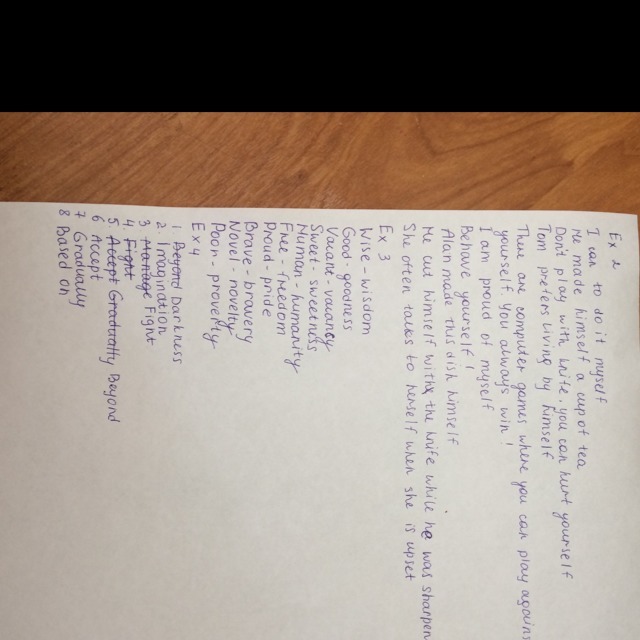 Ex 2
I can to do it myself
He made himself a cup of tea
Don't play with knife, you can hurt yourself
Tom prefers living by himself
There are computer games where you can play agains
yourself. You always win!
I am proud of myself
Behave yourself!
Alan made this dish himself
He cut himself with the knife while he was sharpen
She often talks to herself when she is upset
Ex 3
Wise - wisdom
Good - goodness
Vacant - vacancy
Sweet - sweetness
Human - humanity
Free - freedom
Proud - pride
Brave - bravery
Novel - novelty
Poor - proverty
Ex 4
1. Beyond Darkness
2. Imagination
3. Manage Fight
4. Fight
5. Accept Greatnatly Beyond
6 Accept
7 Gradually
8 Based on